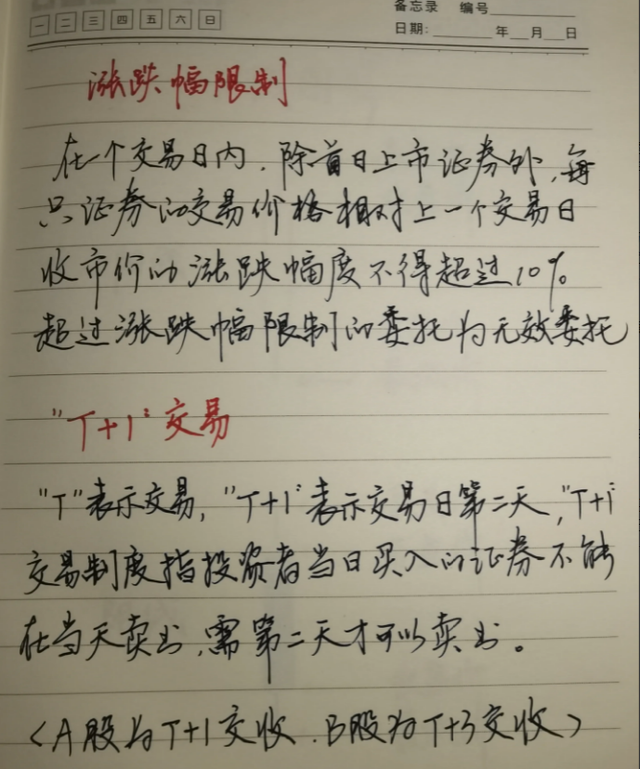 备忘录 编号
一 二 三 四 五 六 日
日期: 年 月 日
涨跌幅限制
在一个交易日内，除首日上市证券外，每
只证券的交易价格相对上一个交易日
收市价的涨跌幅度不得超过10%
超过涨跌幅限制的委托为无效委托
"T+1"交易
"T"表示交易，"T+1"表示交易日第二天，"T+1"
交易制度指投资者当日买入的证券不能
在当天卖出，需第二天才可以卖出。
<A股为T+1交收．B股为T+3交收>